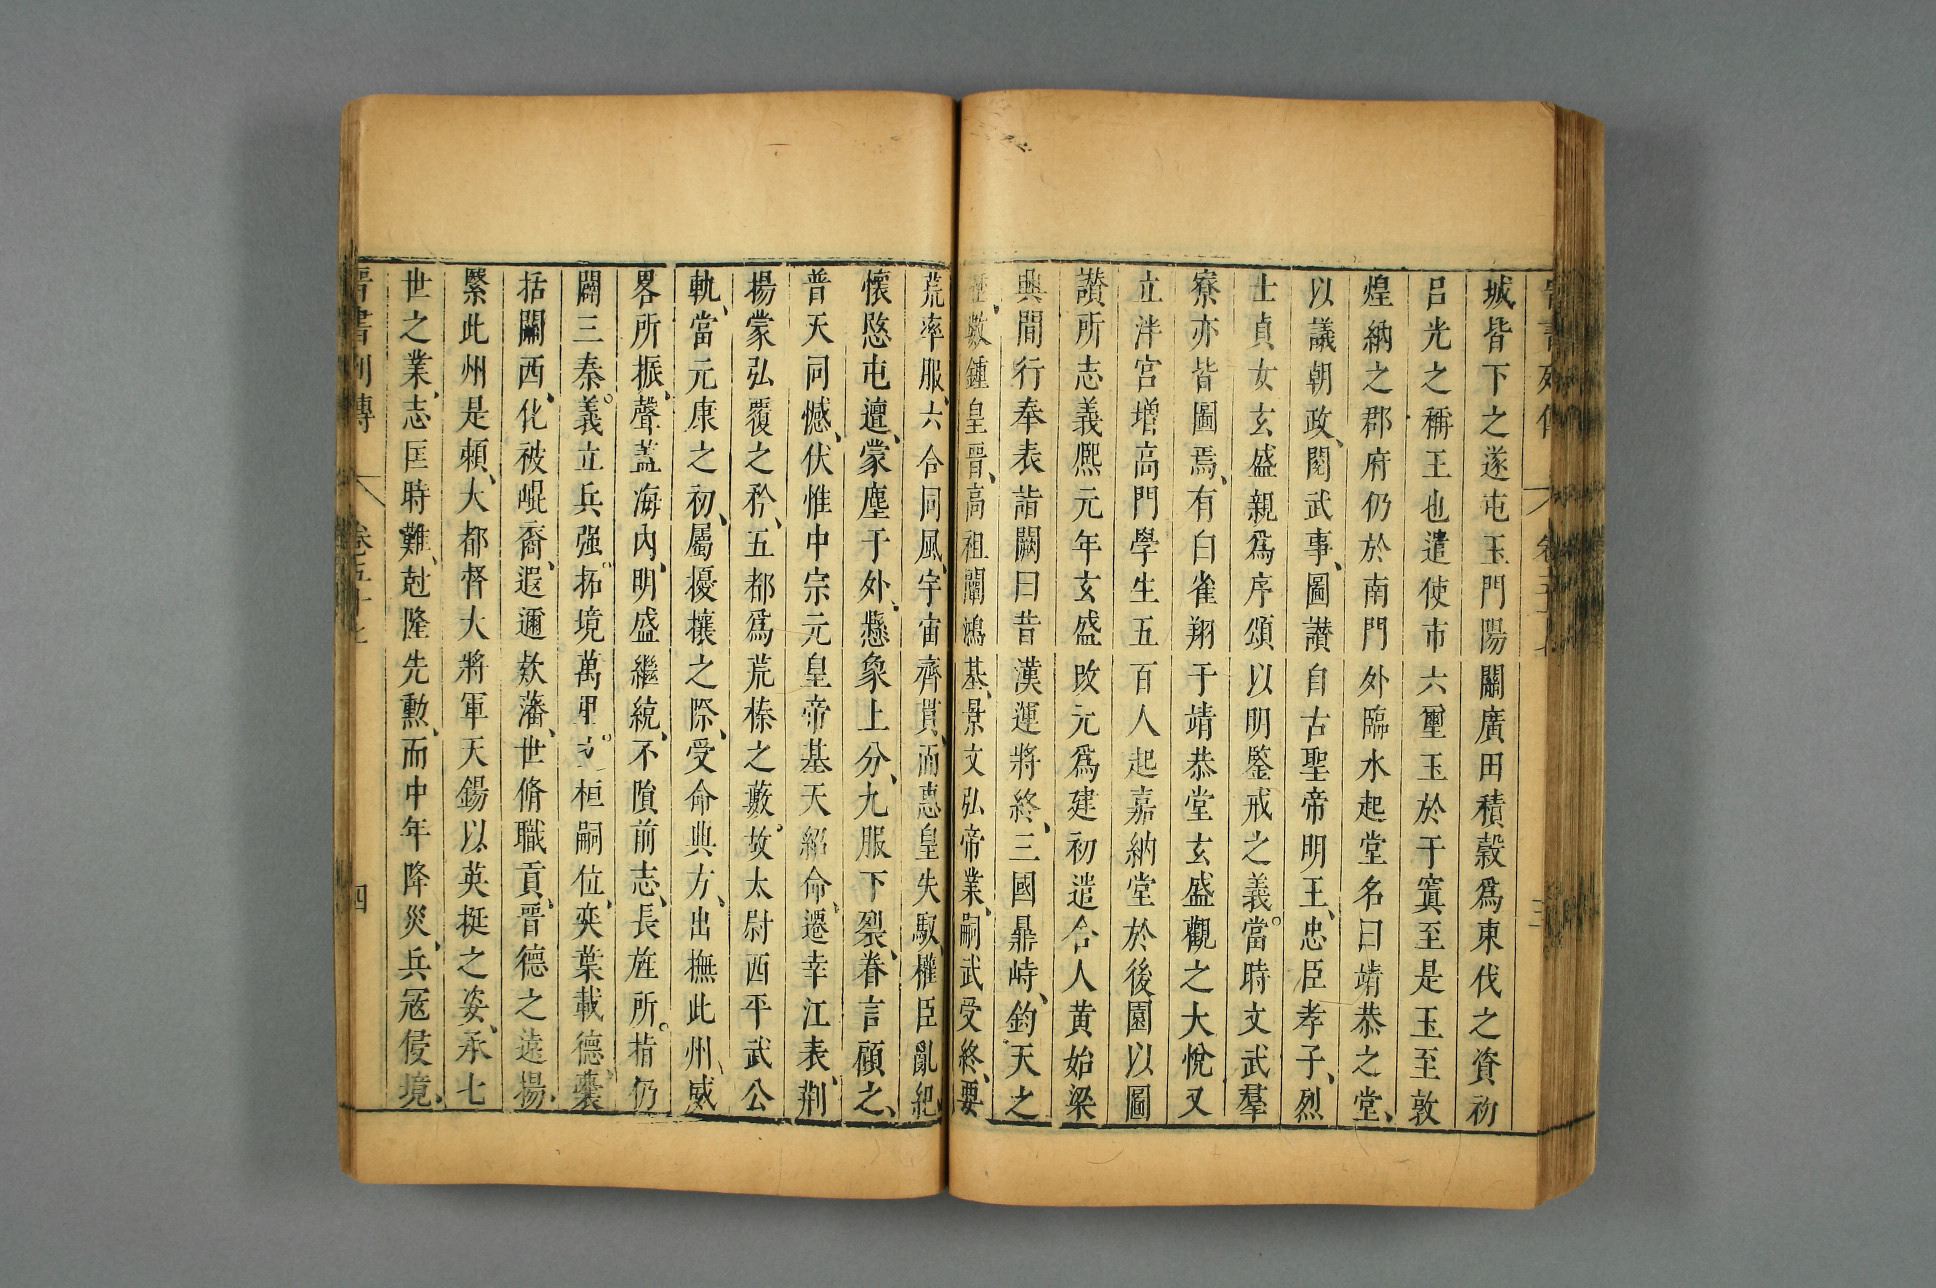 晉書列傳 卷五十七 三
城皆下之遂屯玉門陽關廣田積穀爲東伐之資初
呂光之稱王也遣使市六璽玉於于窴至是玉至敦
煌納之郡府仍於南門外臨水起堂名曰靖恭之堂、
以議朝政、閱武事、圖讃自古聖帝明王、忠臣孝子、烈
士貞女玄盛親爲序頌以明鑒戒之義。當時文武羣
寮亦皆圖焉、有白雀翔于靖恭堂玄盛觀之大悅又
立泮宮增高門學生五百人起嘉納堂於後園以圖
讃所志義熈元年玄盛改元爲建初遣舍人黄始梁
興間行奉表詣闕曰昔漢運將終、三國鼎峙、鈞天之
歷、數鍾皇晉、高祖闡鴻基、景文弘帝業、嗣武受終、要
荒率服、六合同風、宇宙齊貫、而惠皇失馭、權臣亂紀、
懷愍屯邅、蒙塵于外、懸象上分、九服下裂、眷言顧之、
普天同憾、伏惟中宗元皇帝基天紹命、遷幸江表、荆
揚蒙弘覆之矜、五都爲荒榛之藪。故太尉西平武公
軌、當元康之初、屬擾攘之際、受命典方、出撫此州、威
畧所振、聲蓋海內、明盛繼統、不隕前志、長旌所。指仍
闢三秦。義立兵强。拓境萬里。文桓嗣位、奕葉載德、囊
括關西、化被崐裔、遐邇欵藩、世脩職貢、晉德之遠揚、
緊此州是頼、大都督大將軍天錫以英挺之姿、承七
世之業、志匡時難、尅隆先勲、而中年降災、兵寇侵境、
晉書列傳 卷五十七 四